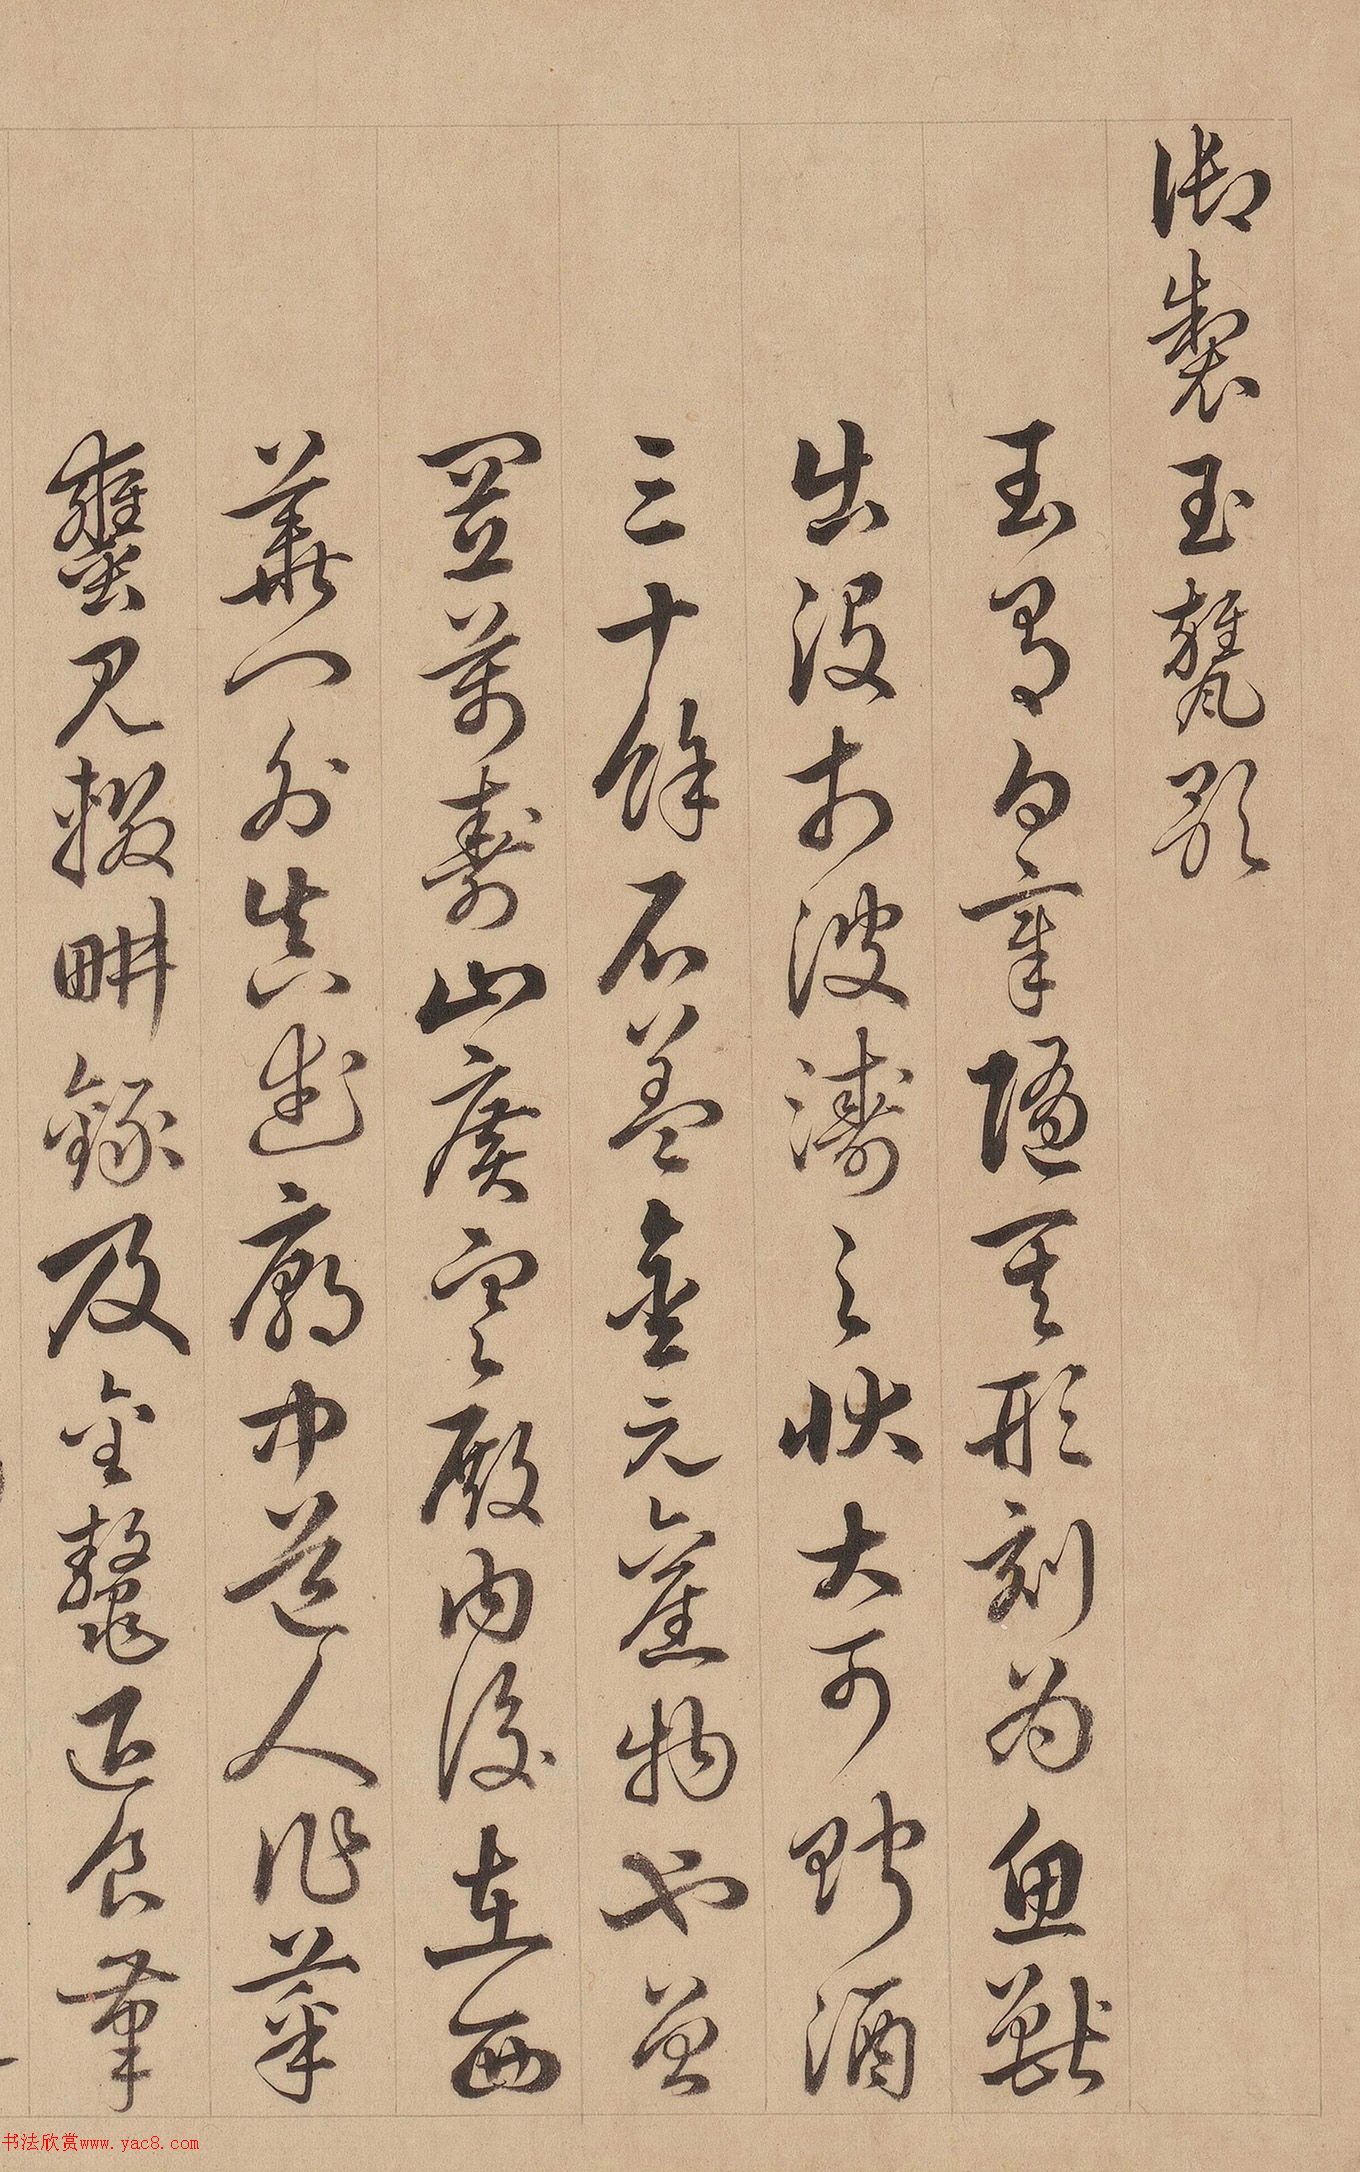 御製玉甕歌
玉有白章隨其形刻為魚獸
出沒於波濤之狀大可貯酒
三十餘石蓋金元舊物也曾
置萬壽山廣寒殿內後在西
華門外真武廟中道人作菜
甕見輟畊錄及金鼇退食筆
书法欣赏www.yac8.com